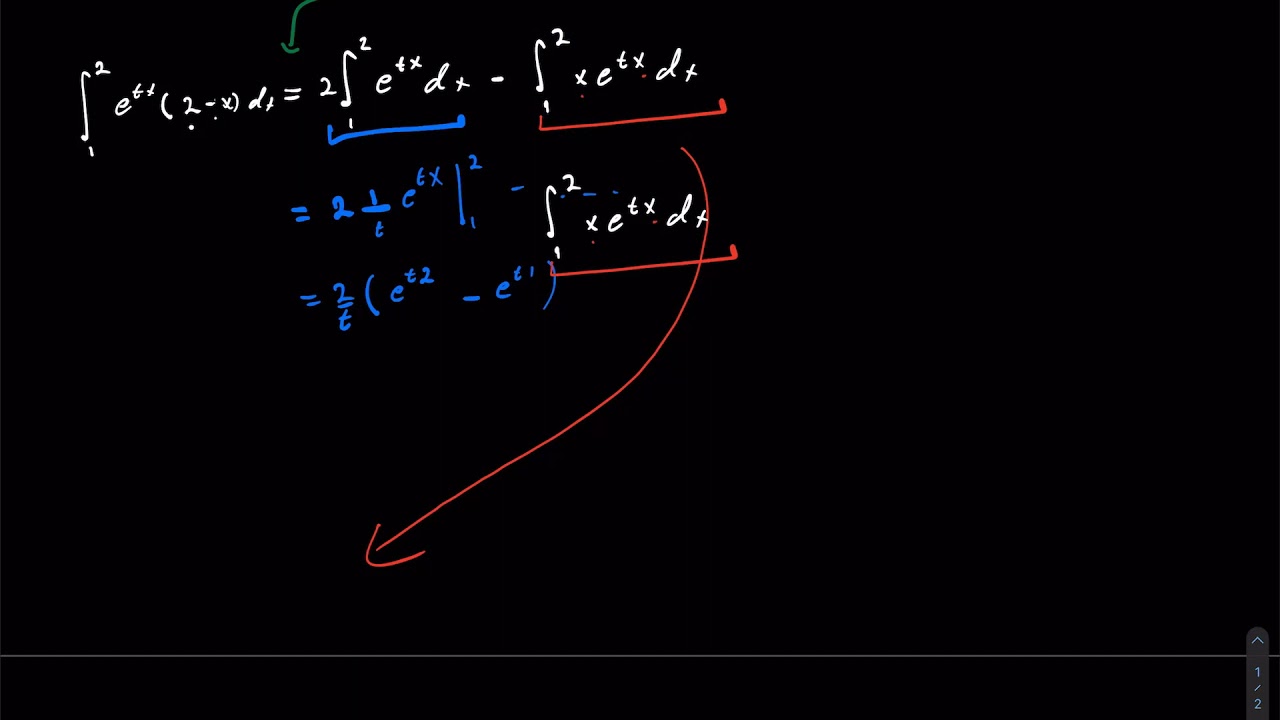 ∫₁² e^{tx} (2 - x) dx = 2 ∫₁² e^{tx} dx - ∫₁² x e^{tx} dx
= 2 1/t e^{tx} |₁² - ∫₁² x e^{tx} dx
= 2/t ( e^{t2} - e^{t1} )
1
/
2